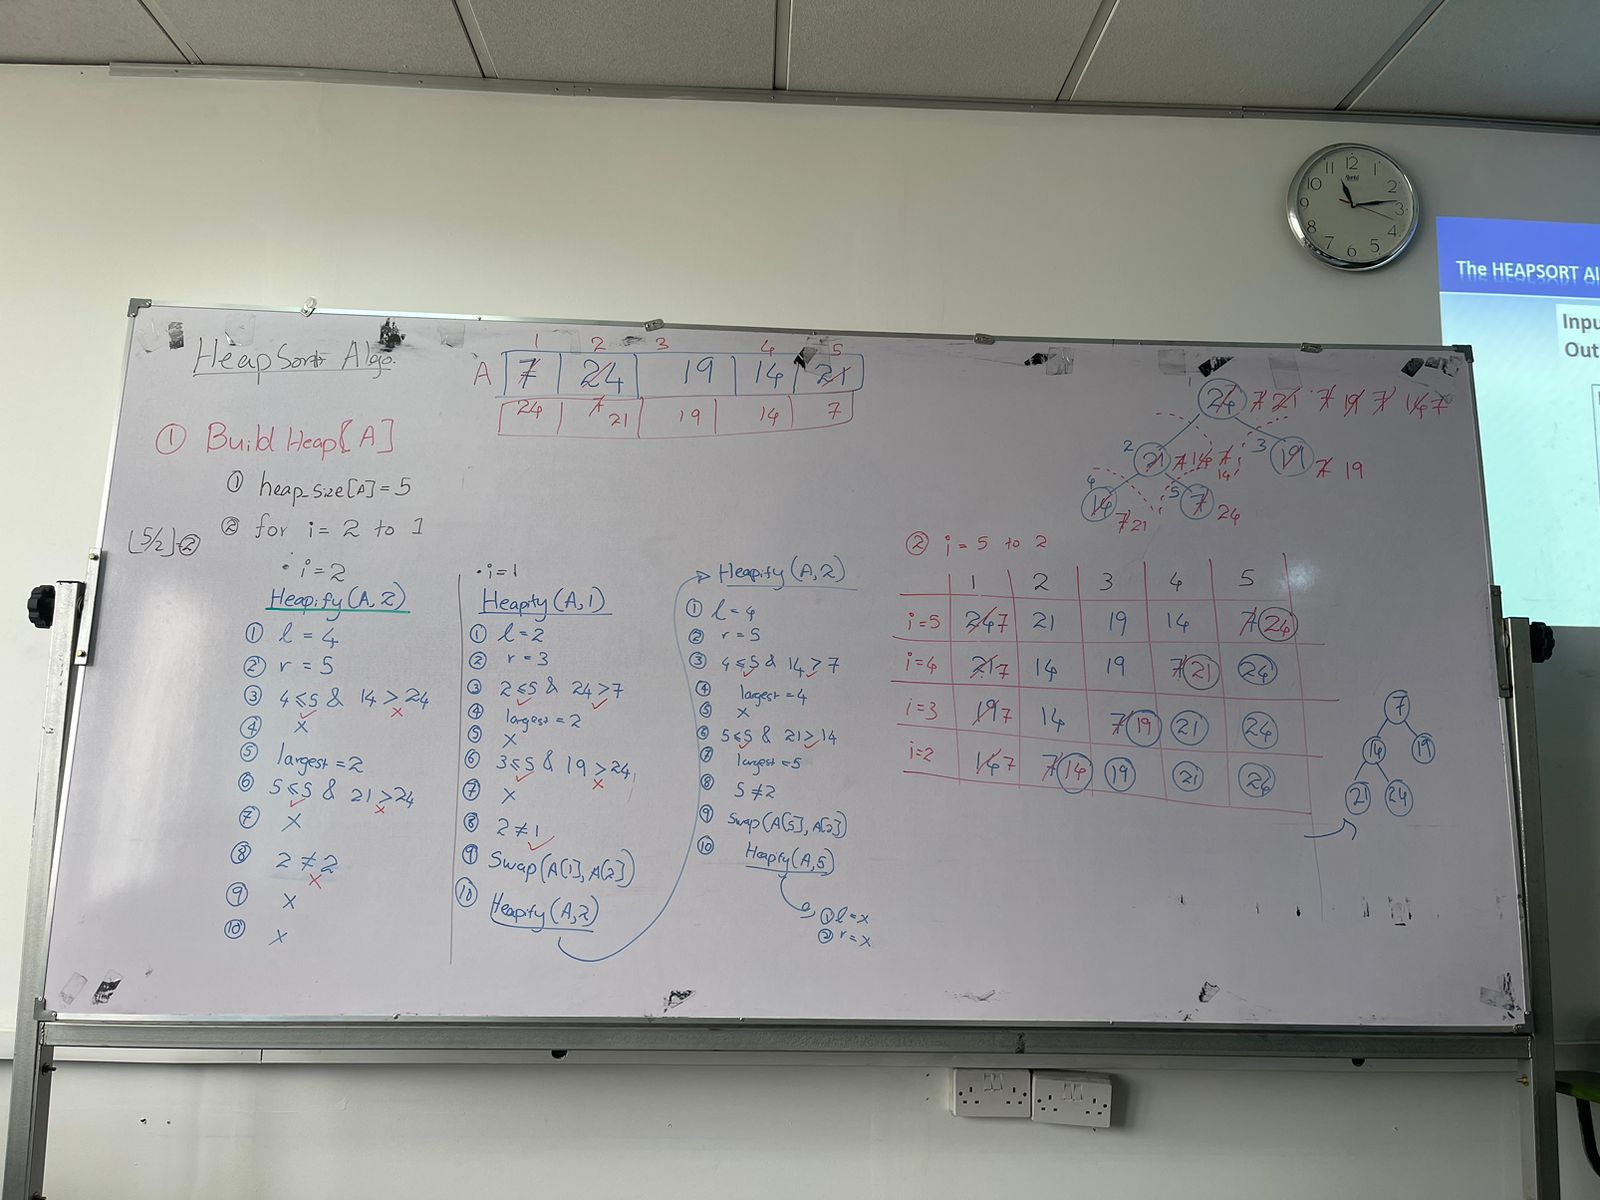 HeapSort Algo.
1 2 3 4 5
A 7 24 19 14 21
24 7 21 19 14 7
① Build Heap[A]
① heap_size[A]=5
② for i = 2 to 1
⌊5/2⌋=2
• i=2
Heapify(A,2)
① l = 4
② r = 5
③ 4≤5 & 14>24
④ x
⑤ largest=2
⑥ 5≤5 & 21>24
⑦ x
⑧ 2≠2
⑨ x
⑩ x
• i=1
Heapify(A,1)
① l=2
② r=3
③ 2≤5 & 24>7
④ largest=2
⑤ x
⑥ 3≤5 & 19>24
⑦ x
⑧ 2≠1
⑨ Swap(A[1],A[2])
⑩ Heapify(A,2)
Heapify(A,2)
① l=4
② r=5
③ 4≤5 & 14>7
④ largest=4
⑤ x
⑥ 5≤5 & 21>14
⑦ largest=5
⑧ 5≠2
⑨ Swap(A[5],A[2])
⑩ Heapify(A,5)
① l=x
② r=x
1 24 7 21 7 19 7 14 7
2 21 7 14 7 14 3 19 7 19
4 14 7 21 5 7 24
② i = 5 to 2
1 2 3 4 5
i=5 24 7 21 19 14 7 24
i=4 21 7 14 19 7 21 24
i=3 19 7 14 7 19 21 24
i=2 14 7 7 14 19 21 24
7
14 19
21 24
12 1 2 3 4 5 6 7 8 9 10 11
The HEAPSORT Al
Inpu
Out